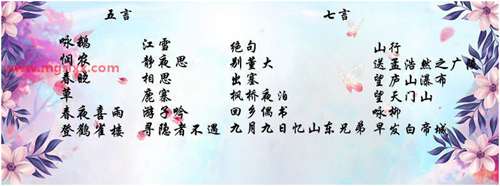 五言 七言
咏鹅 江雪 绝句 山行
悯农 静夜思 别董大 送孟浩然之广陵
春晓 相思 出塞 望庐山瀑布
草 鹿寨 枫桥夜泊 望天门山
春夜喜雨 游子吟 回乡偶书 咏柳
登鹳雀楼 寻隐者不遇 九月九日忆山东兄弟 早发白帝城